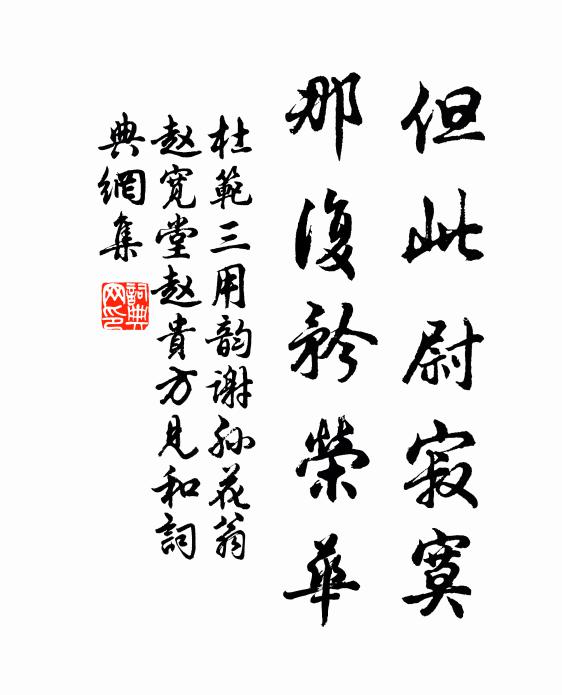 但此尉寂寞
那復矜榮華
杜範三用韵谢孙花翁
赵寬堂赵貴方見和詞
典網集
詞典网印